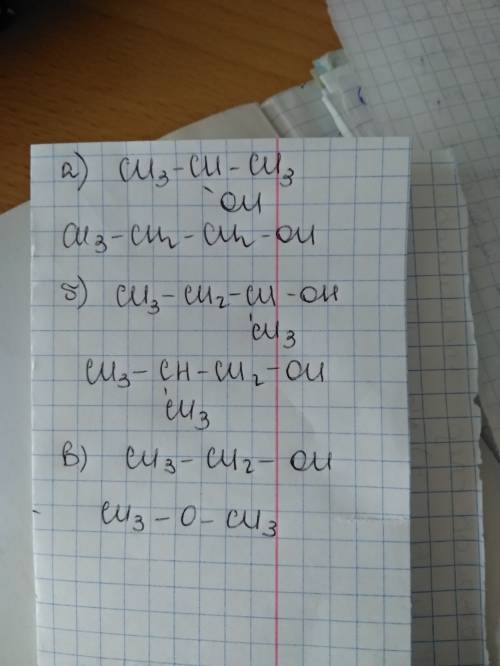 а) CH3-CH-CH3
OH
CH3-CH2-CH2-OH
б) CH3-CH2-CH-OH
CH3
CH3-CH-CH2-OH
CH3
в) CH3-CH2-OH
CH3-O-CH3